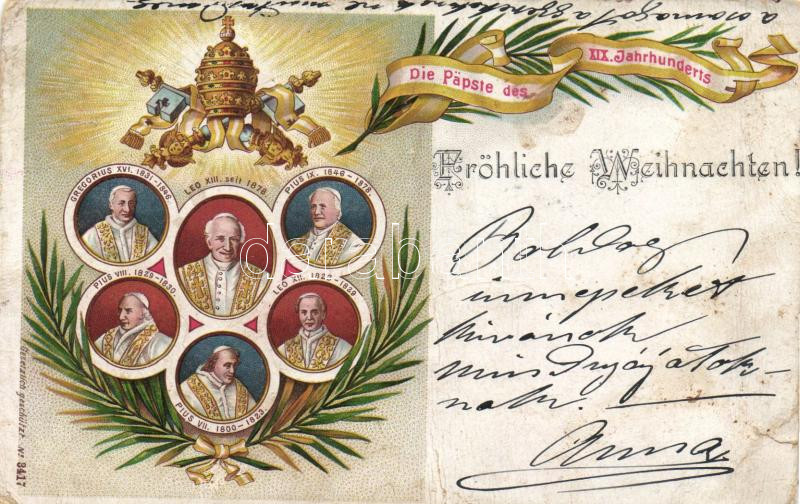 Die Päpste des
XIX. Jahrhunderts
GREGORIUS XVI. 1831-1846.
LEO XIII. seit 1878.
PIUS IX. 1846-1878.
PIUS VIII. 1829-1830.
LEO XII. 1823-1829
PIUS VII. 1800-1823.
Gesetzlich geschützt. No 3417
Fröhliche Weihnachten!
Boldog
ünnepeket
kívánok
mindnyájatok-
nak. —
Anna
databank